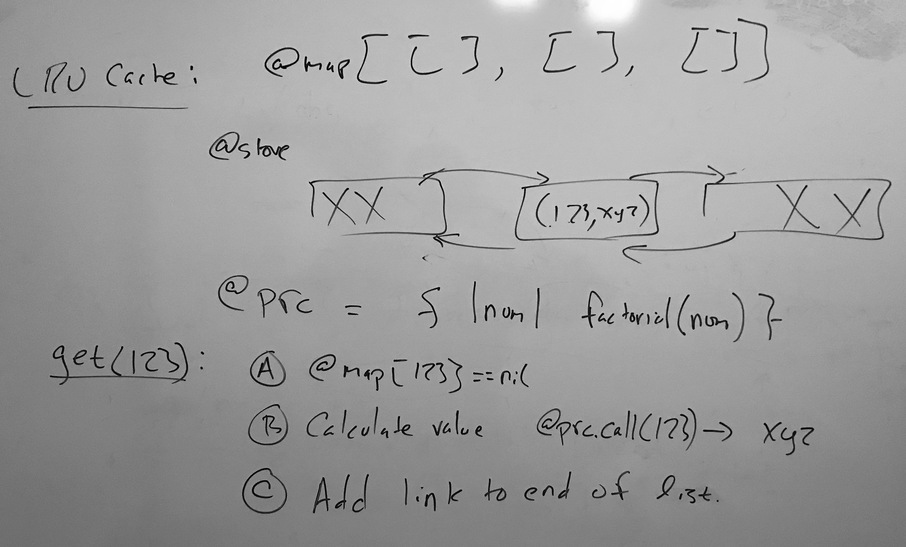 LRU Cache: @map[ [ ], [ ], [ ]]
@store
XX (123,xyz) XX
@prc = { |num| factorial(num) }
get(123): Ⓐ @map[123]==nil
Ⓑ Calculate value @prc.call(123)→ xyz
Ⓒ Add link to end of list.